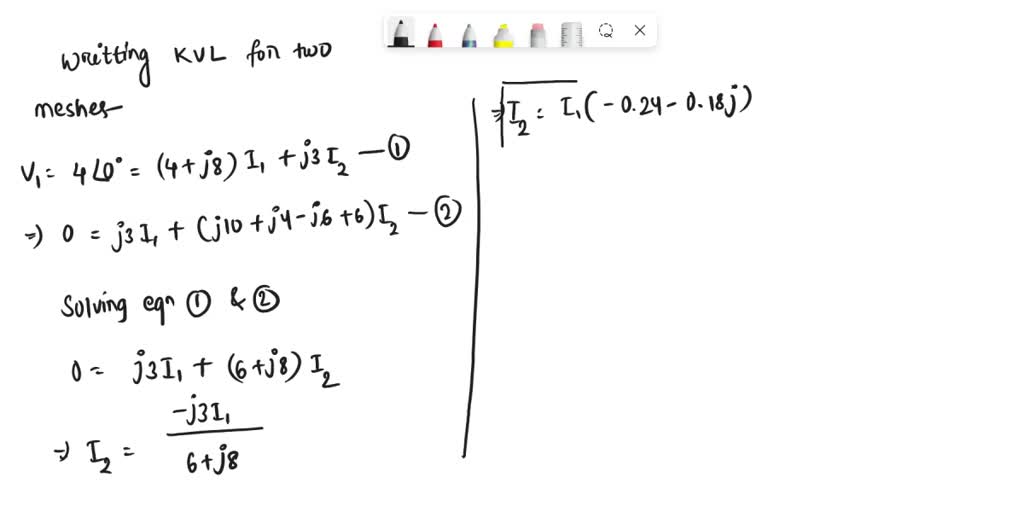 writting KVL for two
meshes
V₁ = 4∠0° = (4+j8) I₁ + j3 I₂ — ①
⇒ 0 = j3 I₁ + (j10 + j4 - j6 + 6) I₂ — ②
Solving eqn ① & ②
0 = j3 I₁ + (6+j8) I₂
⇒ I₂ = -j3 I₁ / 6+j8
⇒ I₂ = I₁ (-0.24 - 0.18j)